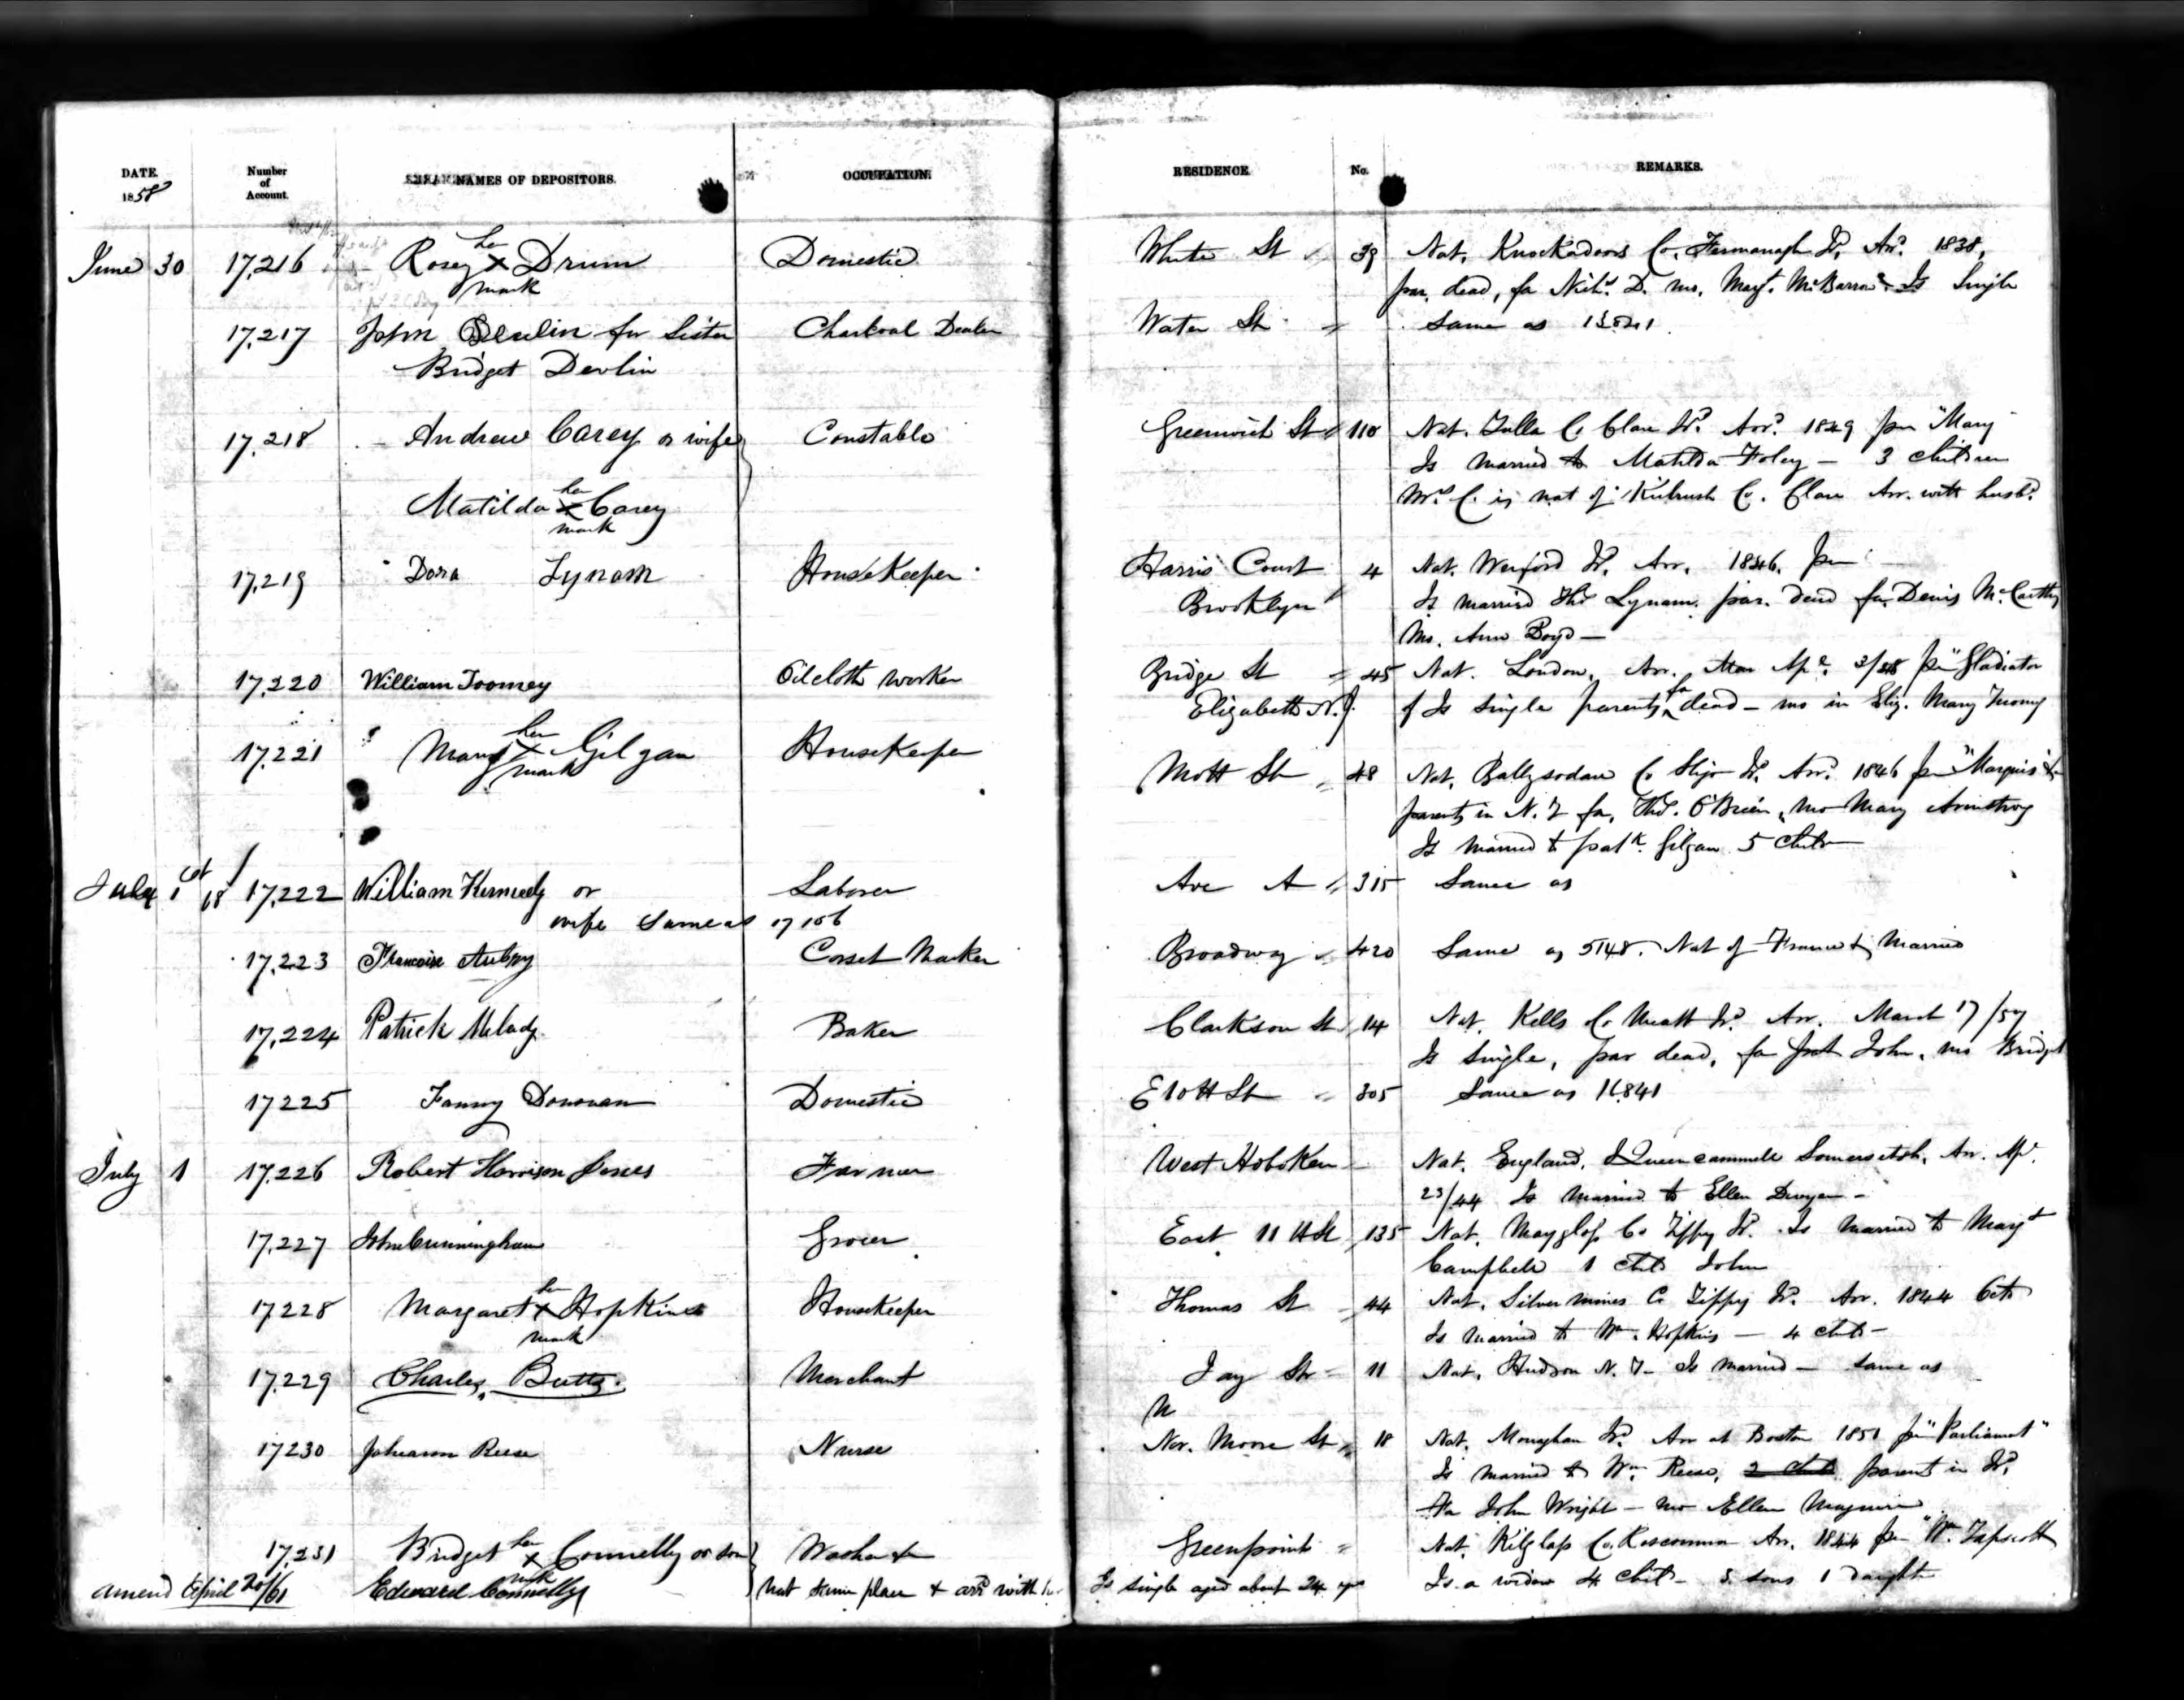 DATE. Number of Account. NAMES OF DEPOSITORS. OCCUPATION. RESIDENCE No. REMARKS.
1858
June 30 17,216 Rosey her X mark Drum Domestic White St " 39 Nat. Co. Fermanagh Ir. Arr. 1838,
par. dead, fa Nichs. D. mo. Margt. Is Single
17,217 John Devlin for Sister Charcoal Dealer Water St " Same as
Bridget Devlin
17,218 Andrew Carey or wife Constable Greenwich St " 110 Nat. Tulla Co Clare Ir. Arr. 1849 per "Mary
Is married to Matilda Foley — 3 children
Matilda her X mark Carey Mrs. C. is nat of Kilrush Co. Clare Arr. with husbd.
17,219 Dora Lynam HouseKeeper Harris Court 4 Nat. Wexford Ir. Arr. 1846. per
Brooklyn " Is married Thos Lynam. par. dead fa. Denis McCarthy
mo. Ann Boyd —
17,220 William Toomey Oilcloth worker Bridge St " 45 Nat. London. Arr. per "Gladiator
Elizabeth N.J. Is single parents fa dead — mo in Eliz. Mary Toomy
17,221 Mary her X mark Gilgan HouseKeeper Mott St " 48 Nat. Ballysodare Co Sligo Ir. Arr. 1846 per "Marquis
parents in N.Y fa, Thos. O'Brien, mo Mary Armstrong
Is married to Patk. Gilgan 5 child
July 1st 17,222 William Kennedy or Laborer Ave A " 315 Same as
wife same as 17 106
17,223 Francoise Aubry Corset Maker Broadway " 420 Same as 5148. Nat of France & Married
17,224 Patrick Melady Baker Clarkson St 14 Nat. Kells Co Meath Ir. Arr. March 17/57
Is single, par dead, fa John, mo Bridget
17225 Fanny Donovan Domestic E 10th St " 305 Same as 16841
July 1 17,226 Robert Harrison Jones Farmer West Hoboken Nat. England, Somersetsh. Arr. Ap.
23/44 Is married to Ellen Dwyer —
17,227 John Cunningham Grocer East 11th St 135 Nat. Co Tippy Ir. Is married to Margt
Campbell 1 child John
17228 Margaret her X mark Hopkins HouseKeeper Thomas St 44 Nat. Silvermines Co Tippy Ir. Arr. 1844 Oct
Is married to Wm. Hopkins — 4 child —
17,229 Charles Butts. Merchant Jay St 11 Nat. Hudson N.Y — Is married — same as
N
17230 Johann Reese Nurse Nor. Moore St " 18 Nat. Monaghan Ir. Arr at Boston 1851 per "Parliament"
Is married to Wm. Reese, 2 child parents in Ir.
Fa John Wright — mo Ellen Maguire
17,231 Bridget her X mark Connelly or son Washer Greenpoint " Nat. Kilglass Co. Roscommon Arr. 1844 per "W. Tapscott
amend April 20/61 Edward Connelly nat same place & arrd with Is single aged about 24 yrs Is a widow 4 child — 3 sons 1 daught